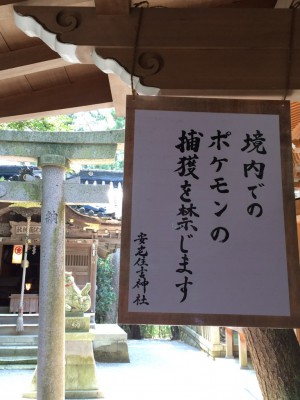 境内での
ポケモンの
捕獲を禁じます
安志住吉神社